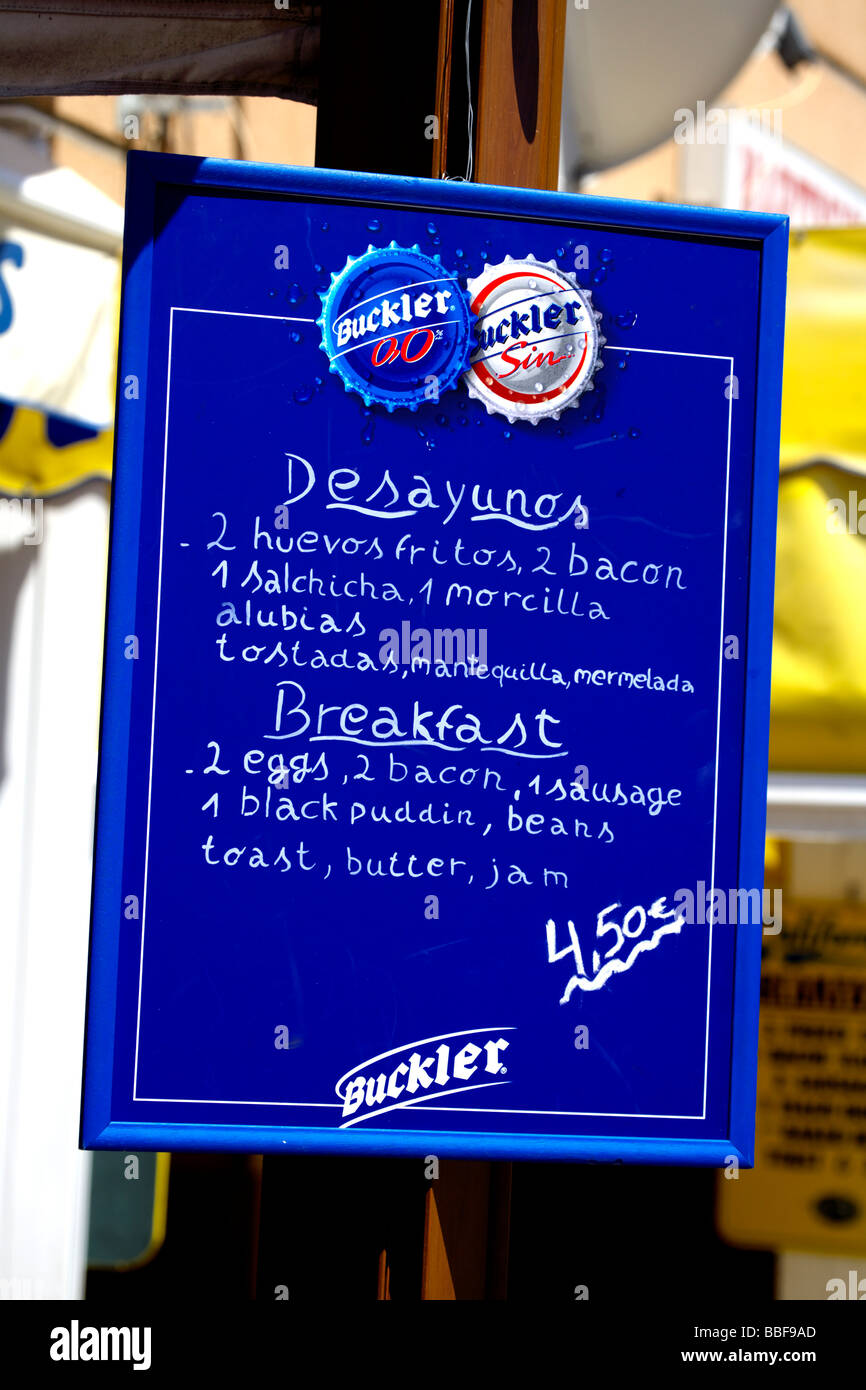 Buckler
0,0%
Buckler
Sin
Desayunos
- 2 huevos fritos, 2 bacon
1 salchicha, 1 morcilla
alubias
tostadas, mantequilla, mermelada
Breakfast
- 2 eggs, 2 bacon, 1 sausage
1 black puddin, beans
toast, butter, jam
4,50€
Buckler
alamy
Image ID: BBF9AD
www.alamy.com